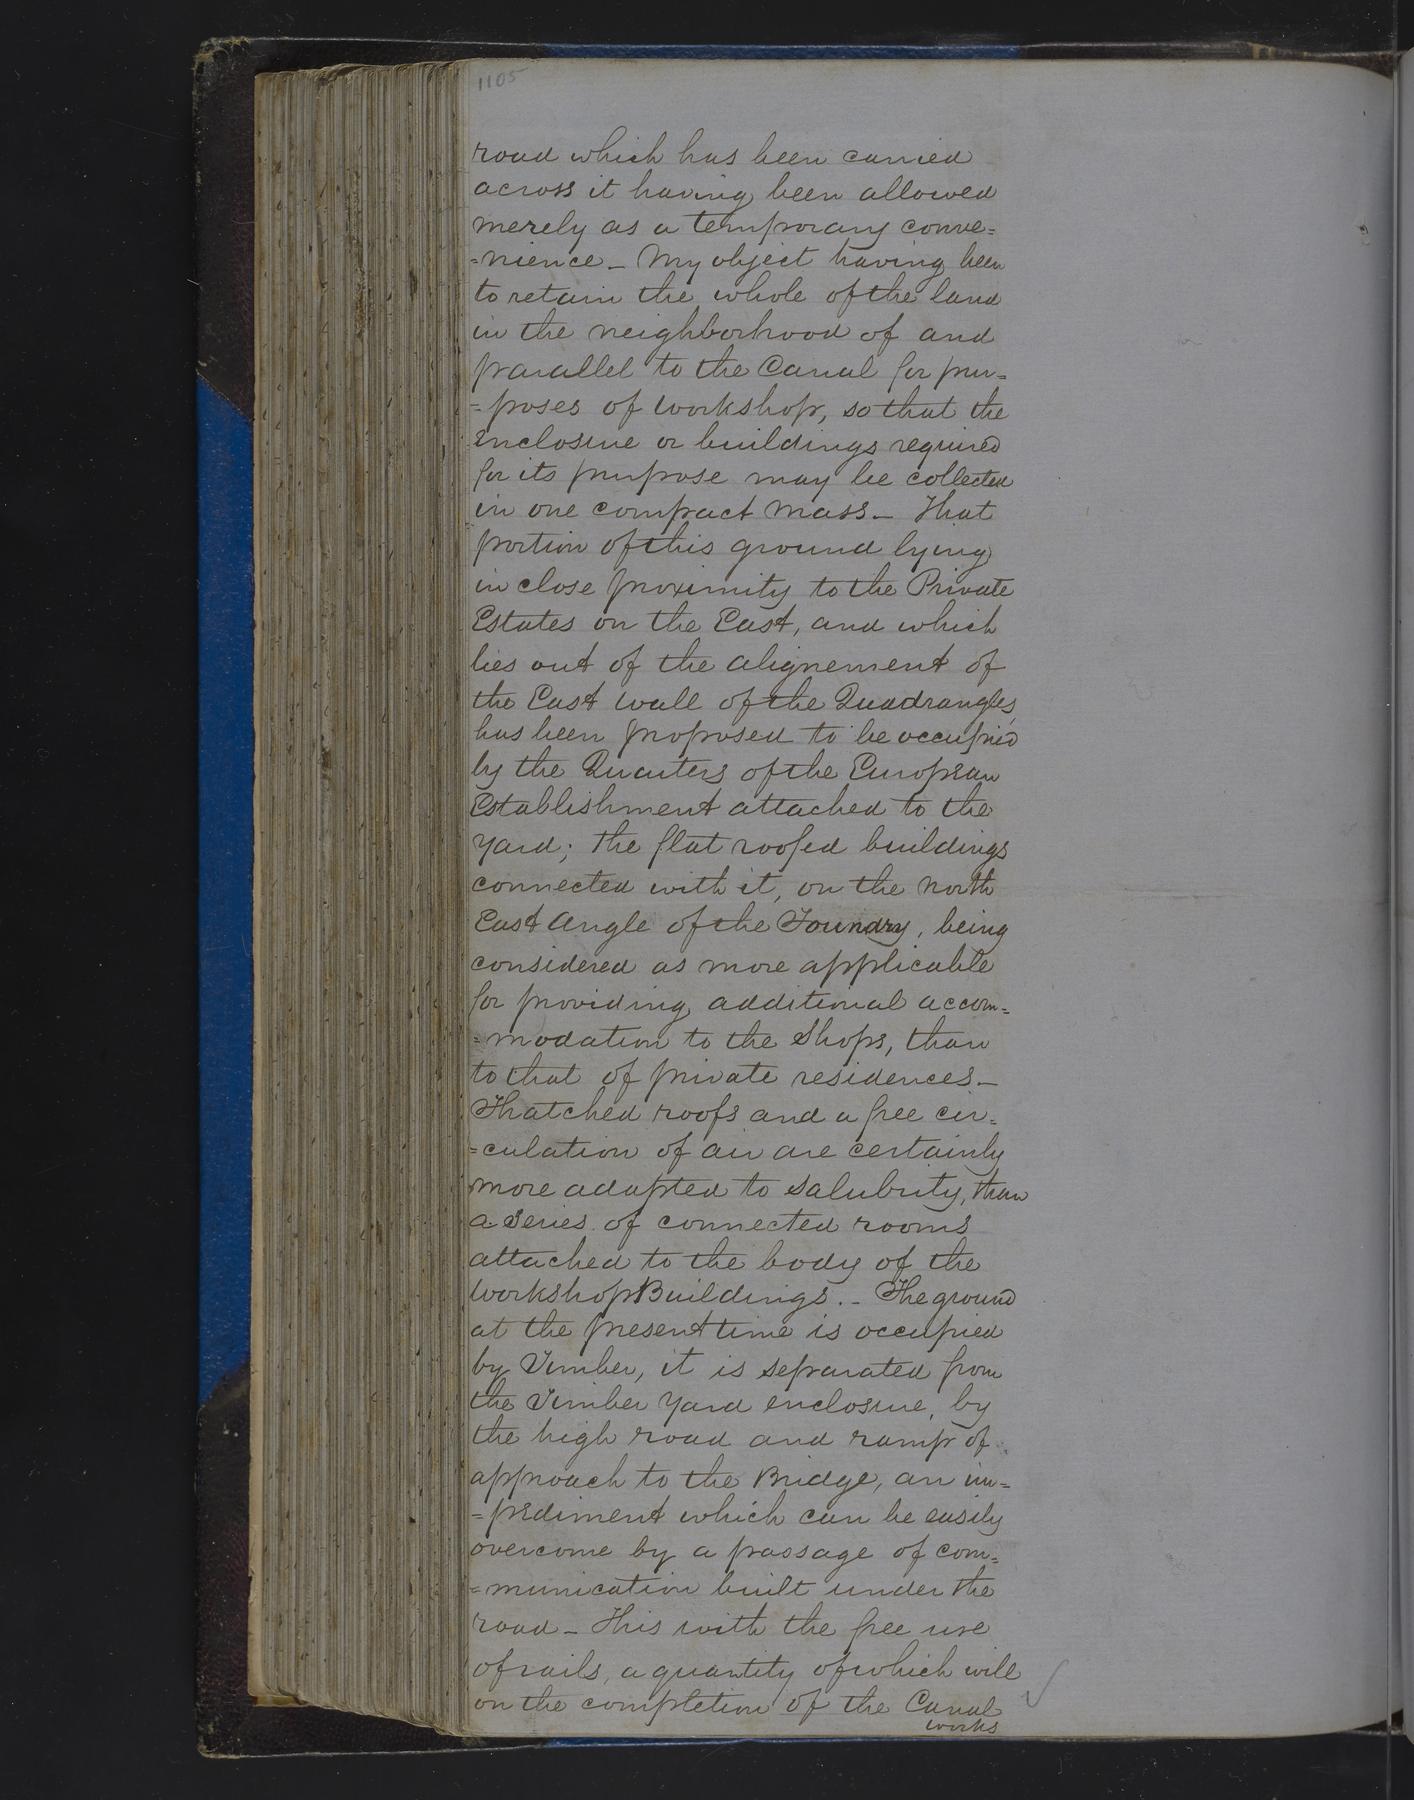 1105
road which has been carried
across it having been allowed
merely as a temporary conve=
=nience_ My object having been
to retain the whole of the land
in the neighborhood of and
parallel to the Canal for pur=
=poses of workshop, so that the
enclosure or buildings required
for its purpose may be collected
in one compact mass_ That
portion of this ground lying
in close proximity to the Private
Estates on the East, and which
lies out of the alignement of
the East wall of the Quadrangles,
has been proposed to be occupied
by the Quarters of the European
Establishment attached to the
yard; the flat roofed buildings
connected with it, on the North
East angle of the Foundry, being
considered as more applicable
for providing additional accom=
=modation to the Shops, than
to that of private residences_
Thatched roofs and a free cir=
=culation of air are certainly
more adapted to salubrity, than
a series of connected rooms
attached to the body of the
workshop Buildings._ The ground
at the present time is occupied
by Timber, it is separated from
the Timber yard enclosure, by
the high road and ramp of
approach to the Bridge, an im=
=pediment which can be easily
overcome by a passage of com=
=munication built under the
road_ This with the free use
of rails, a quantity of which will
on the completion of the Canal
works